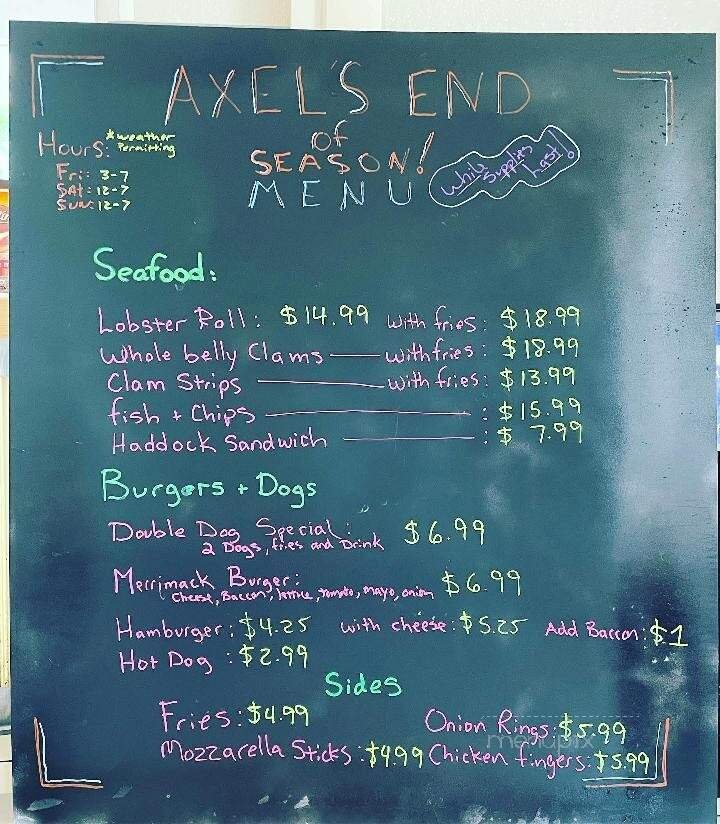 AXEL'S END
of
SEASON!
MENU
While Supplies Last!
Hours: *weather Permitting
Fri: 3-7
SAt: 12-7
SUN: 12-7
Seafood:
Lobster Roll: $14.99 with fries: $18.99
Whole belly Clams with fries: $18.99
Clam Strips with fries: $13.99
fish + Chips : $15.99
Haddock Sandwich : $7.99
Burgers + Dogs
Double Dog Special: $6.99
2 Dogs, fries and Drink
Merrimack Burger: $6.99
Cheese, Bacon, lettuce, tomato, mayo, onion
Hamburger: $4.25 with cheese: $5.25 Add Bacon: $1
Hot Dog: $2.99
Sides
Fries: $4.99 Onion Rings: $5.99
Mozzarella Sticks: $4.99 Chicken fingers: $5.99
menupix